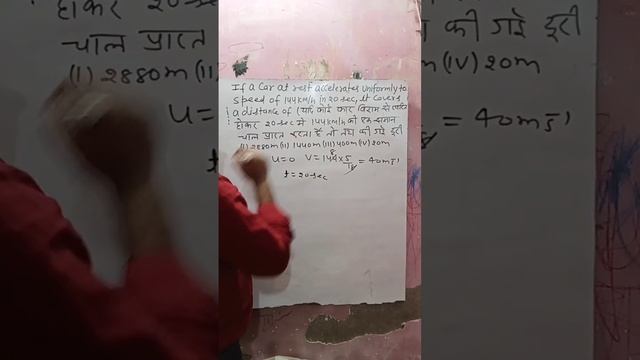 If a Car at rest accelerates uniformly to
speed of 144 km/h in 20 sec, it covers
a distance of (यदि कोई कार विराम से त्वरित
होकर 20 sec में 144 km/h की एक समान
चाल प्राप्त करता है तो तय की गई दूरी
(I) 2880m (II) 1440m (III) 400m (IV) 20m
u=0 v=144×5/18 8 = 40ms⁻¹
t=20sec